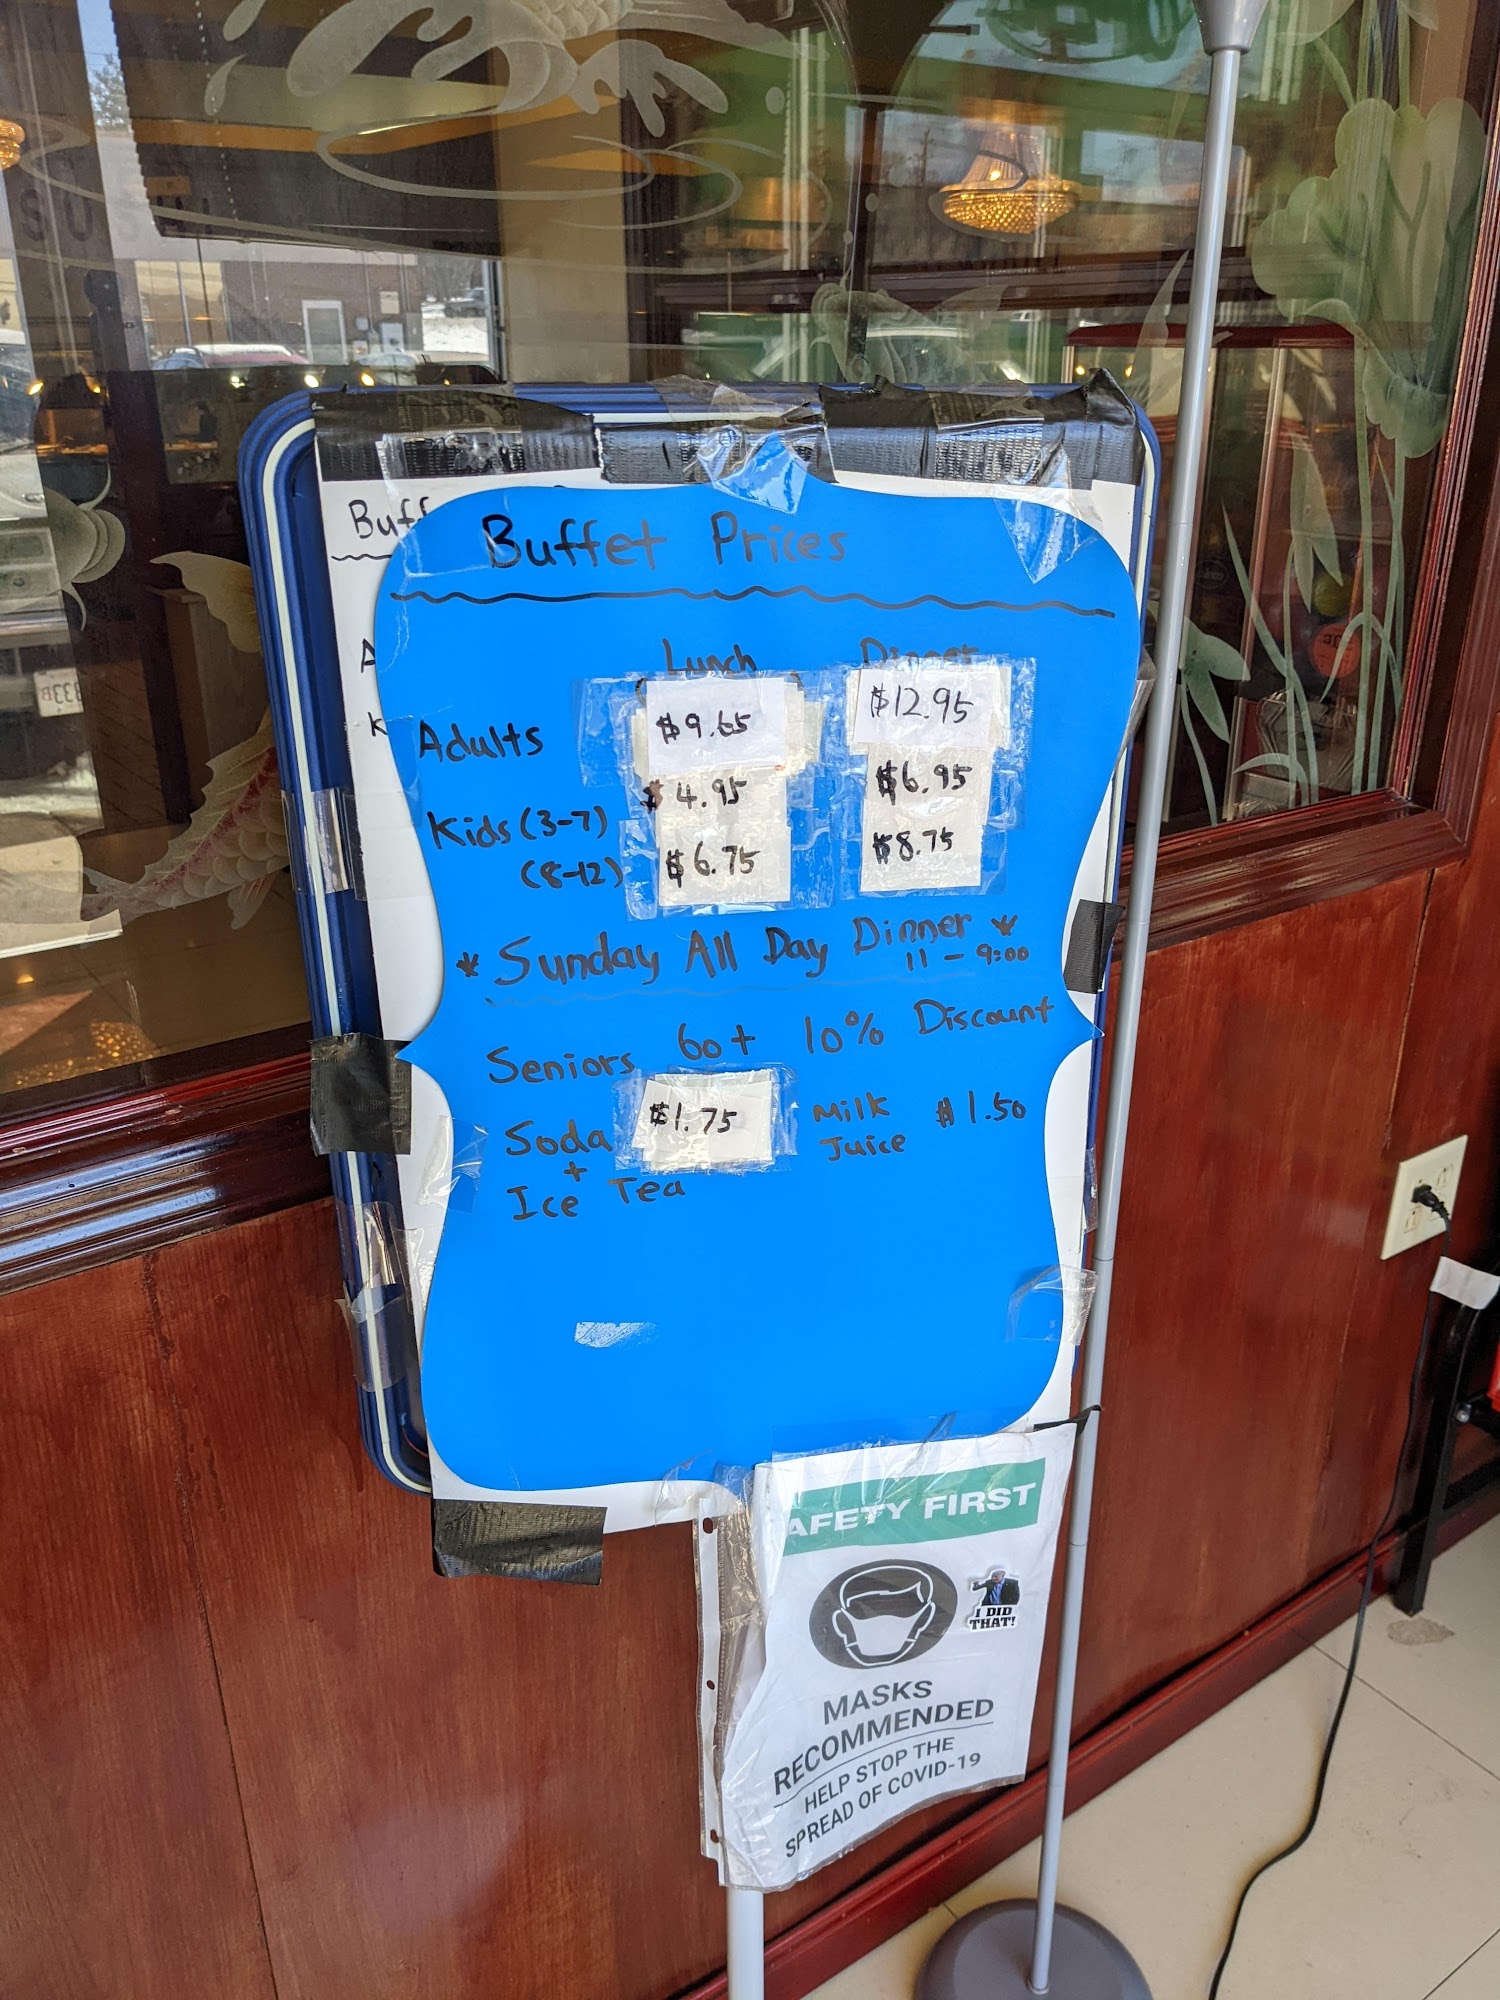 Buffet Prices
Lunch Dinner
Adults $9.65 $12.95
Kids (3-7) $4.95 $6.95
(8-12) $6.75 $8.75
* Sunday All Day Dinner *
11 - 9:00
Seniors 60+ 10% Discount
Soda + Ice Tea $1.75
Milk Juice $1.50
AFETY FIRST
I DID
THAT!
MASKS
RECOMMENDED
HELP STOP THE
SPREAD OF COVID-19